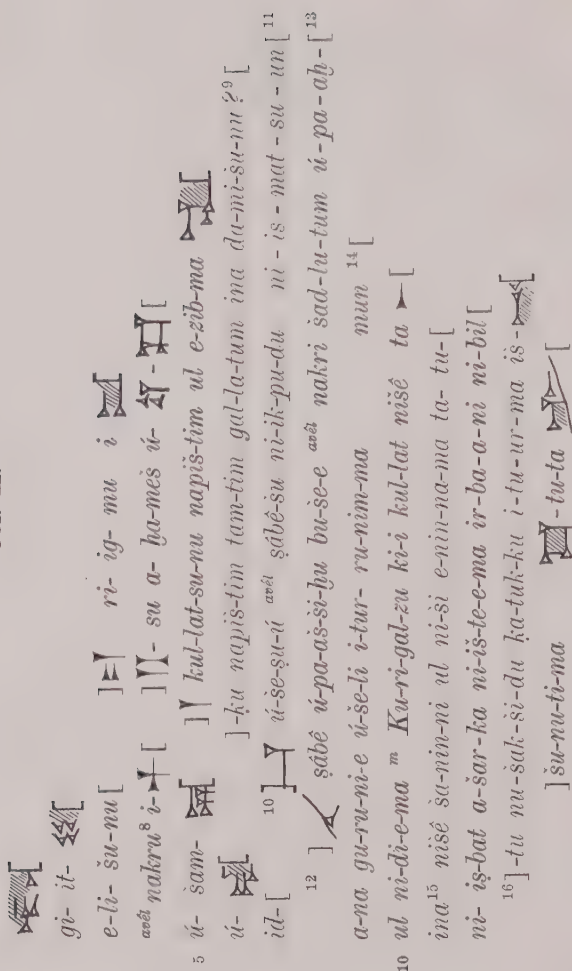 gi- it-
e-li- šu-nu [ ] ri- ig- mu i
avêl nakru⁸ i- [ ] - su a- ha-meš ú- - [
5 ú- šam- ] kul-lat-su-nu napiš-tim ul e-zib-ma
ú- ]-ḳu napiš-tim tam-tim gal-la-tum ina da-mi-šu-nu?⁹ [
id-[ ¹⁰ ] ú-še-ṣu-ú avêl ṣâbê-šu ni-ik-pu-du ni - is - mat - su - un [ ¹¹
¹² ] ṣâbê ú-pa-aš-si-ḫu bu-še-e avêl nakri šad-lu-tum ú-pa-aḫ-[ ¹³
a-na gu-ru-ni-e ú-še-li i-tur- ru-nim-ma mun ¹⁴ [
10 ul ni-di-e-ma ᵐ Ku-ri-gal-zu ki-i kul-lat nišê ta [
ina¹⁵ nišê ša-nin-ni ul ni-ši e-nin-na-ma ta- tu-[
ni- iṣ-bat a-šar-ka ni-iš-te-e-ma ir-ba-a-ni ni-bil [
¹⁶ ]-tu nu-šak-ši-du ḳa-tuk-ku i-tu-ur-ma iš-
] šu-nu-ti-ma -tu-ta [